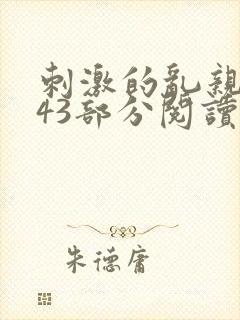 刺激的亂親
43部分閱讀
朱德庸